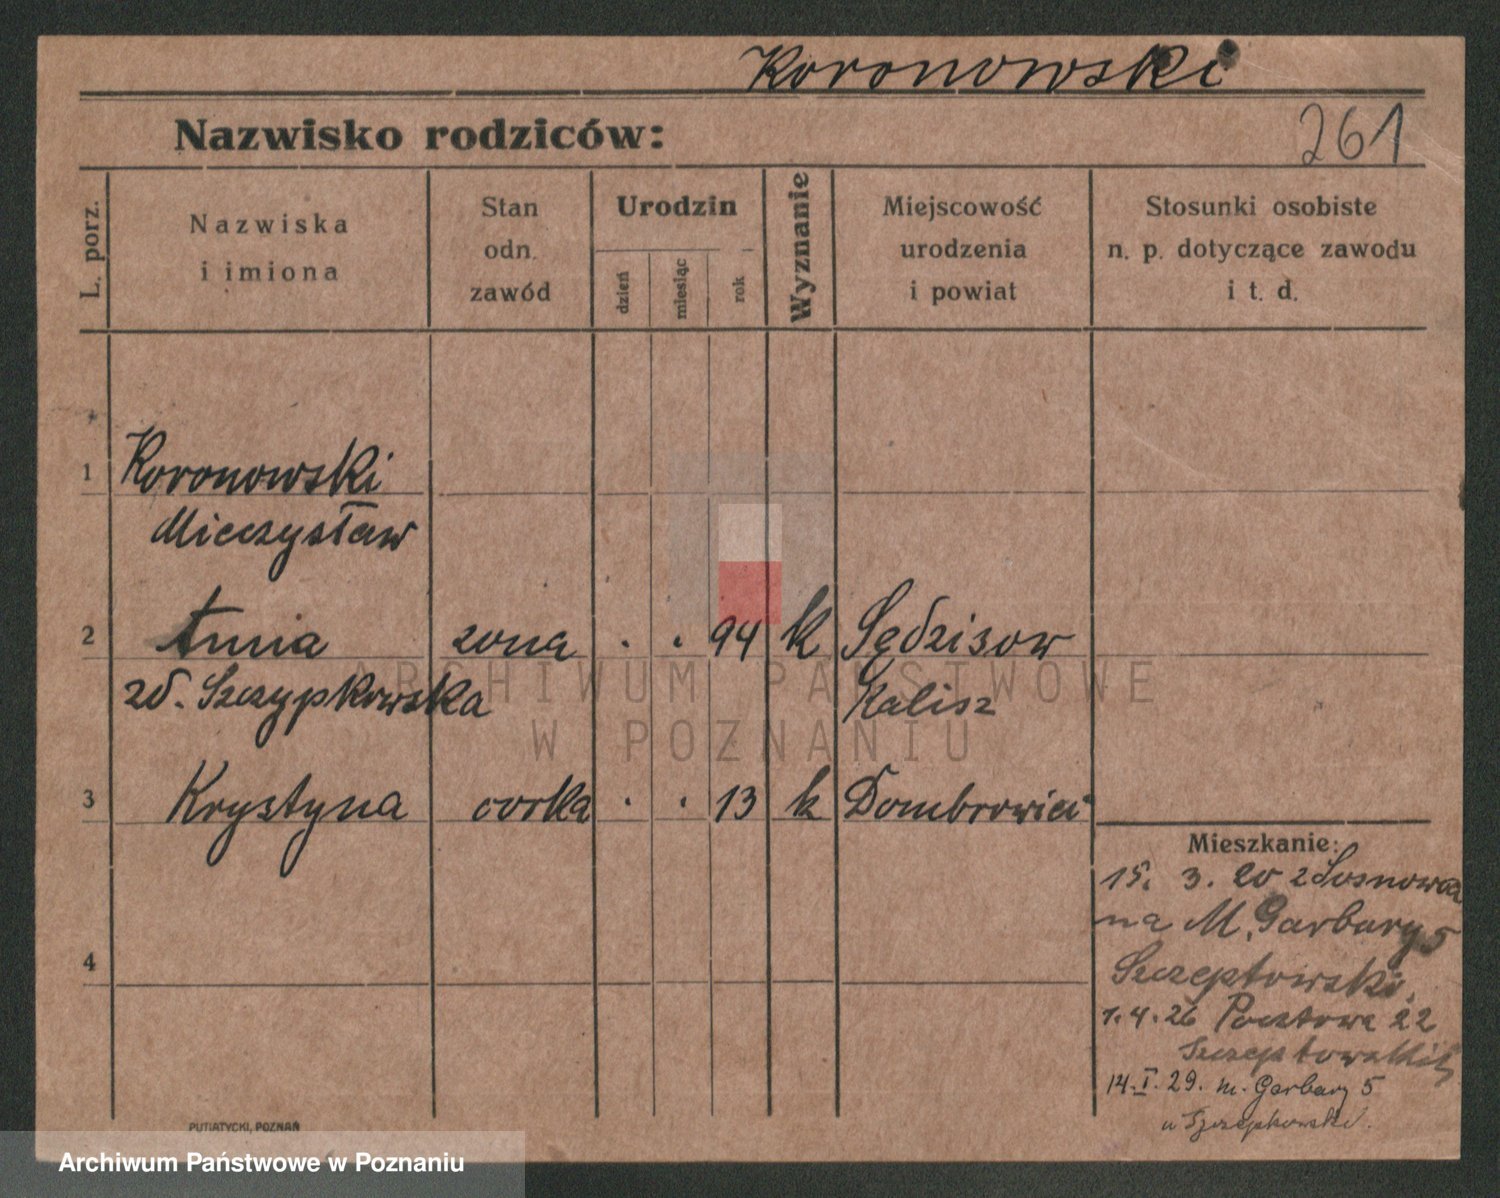 Koronowski
Nazwisko rodziców:
261
L. porz.
Nazwiska
i imiona
Stan
odn.
zawód
Urodzin
dzień
miesiąc
rok
Wyznanie
Miejscowość
urodzenia
i powiat
Stosunki osobiste
n. p. dotyczące zawodu
i t. d.
1 Koronowski
Mieczysław
2 Anna zona . . 94 k Sędziszow
zd. Szczypkowska Kalisz
3 Krystyna corka . . 13 k Dombrowice
4
Mieszkanie:
15. 3. 20 z Sosnowca
na M. Garbary 5
1.4.26 Pocztowa 22
14.I.29. m. Garbary 5
u Szczepkowski.
PUTIATYCKI, POZNAŃ
ARCHIWUM PAŃSTWOWE
W POZNANIU
Archiwum Państwowe w Poznaniu